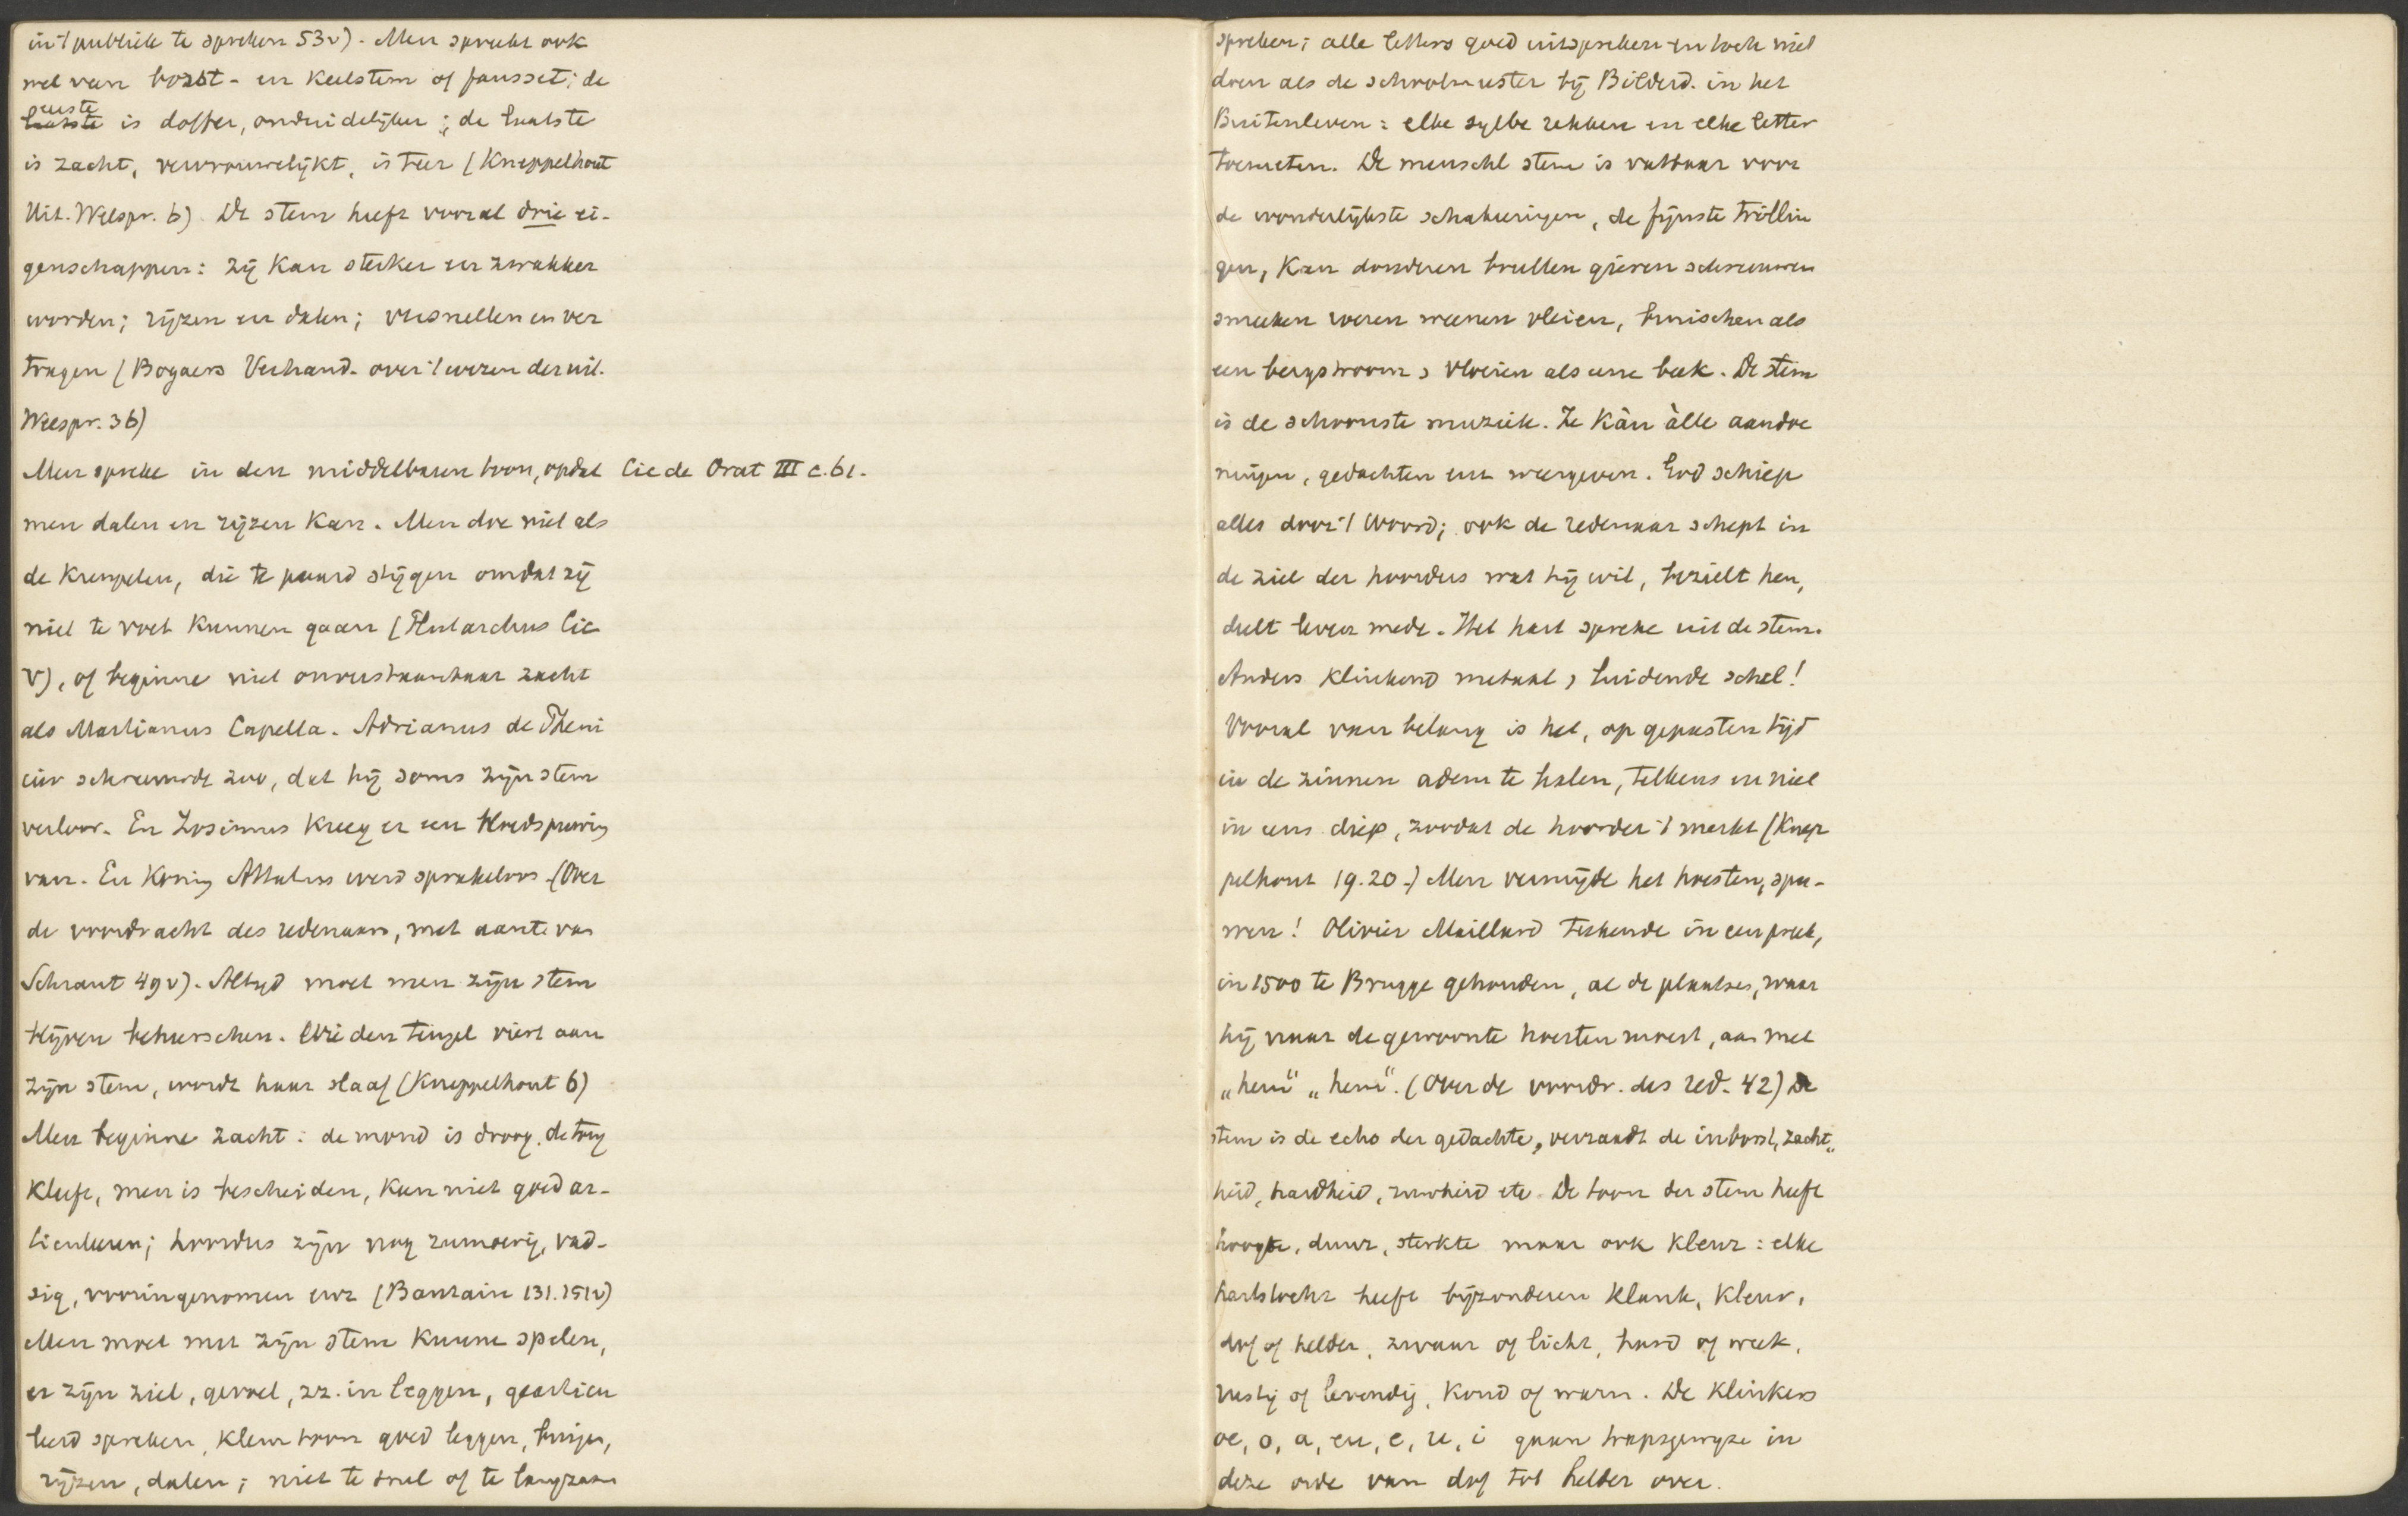 in 't publiek te spreken 53v) - Men spreekt ook
wel van borst- en keelstem of fausset; de
eerste
laatste is doffer, onduidelijker; de laatste
is zacht, vervrouwelijkt, is teer (Kneppelhout
Uit. Welspr. 6) De stem heeft vooral drie ei-
genschappen: zij kan sterker en zwakker
worden; rijzen en dalen; versnellen en ver
tragen (Bogaers Verhand. over 't wezen der uit.
Welspr. 36)
Men spreke in den middelbaren toon, opdat Cic de Orat III c. 61.
men dalen en rijzen kan. Men doe niet als
de kreupelen, die te paard stijgen omdat zij
niet te voet kunnen gaan (Plutarchus Cic
V), of beginne niet onverstaanbaar zacht
als Martianus Capella. Adrianus de Feni
ciër schreeuwde zoo, dat hij soms zijn stem
verloor. En Zosimus kreeg er een bloedspuwing
van. En Koning Attalus werd sprakeloos - (Over
de voordracht des redenaars, met aant. van
Schrant 49v). Altijd moet men zijn stem
blijven beheerschen. Wie den teugel viert aan
zijn stem, wordt haar slaaf (Kneppelhout 6)
Men beginne zacht: de mond is droog, de tong
kleeft, men is bescheiden, kan niet goed ar-
ticuleeren; hoorders zijn nog rumoerig, vad-
sig, vooringenomen enz (Bautain 131. 151v)
Men moet met zijn stem kunne spelen,
er zijn ziel, gevoel, zz. in leggen, gearticu
leerd spreken, kleur toon goed leggen, buigen,
rijzen, dalen; niet te snel of te langzaam
spreken; alle letters goed uitspreken en toch niet
doen als de schoolmeester bij Bilderd. in het
Buitenleven: elke sylbe rekken en elke letter
toemeten. De menschl stem is vatbaar voor
de wonderlijkste schakeringen, de fijnste trillin
gen, kan donderen brullen gieren schreeuwen
smeeken weenen vleien, bruischen als
een bergstroom, vloeien als eene beek. De stem
is de schoonste muziek. Ze kàn àlle aandoe
ningen, gedachten enz weergeven. God schiep
alles door 't Woord; ook de redenaar schept in
de ziel der hoorders wat hij wil, bezielt hen,
deelt leven mede. Het hart spreke uit de stem.
Anders klinkend metaal, luidende schel!
Vooral van belang is het, op gepasten tijd
in de zinnen adem te halen, telkens en niet
in eens diep, zoodat de hoorder 't merkt (Knep
pelhout 19. 20.) Men vermijde het hoesten, spu-
wen! Olivier Maillard teekende in een preek,
in 1500 te Brugge gehouden, al de plaatsen, waar
hij naar de gewoonte hoesten moest, aan met
„hem" „hem". (Over de voordr. des red. 42) De
stem is de echo der gedachte, verraadt de inborst, zacht„
heid, hardheid, ruwheid etc. De toon der stem heeft
hoogte, duur, sterkte maar ook kleur: elke
hartstocht heeft bijzonderen klank, kleur,
dof of helder, zwaar of licht, hard of week,
rustig of levendig, koud of warm. De klinkers
oe, o, a, eu, e, u, i gaan trapsgewyze in
deze orde van dof tot helder over.